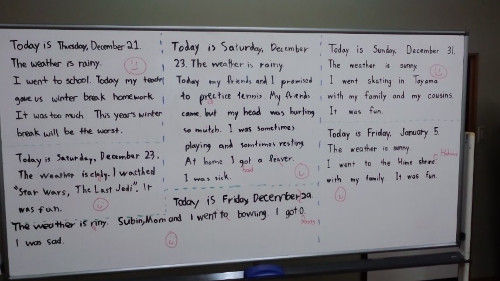 Today is Thursday, December 21.
The weather is rainy.
I went to school. Today my teacher
gave us winter break homework.
It was too much. This year's winter
break will be the worst.
Today is Saturday, December 23.
The weather is I wacthed
"Star Wars, The Last Jedi". It
was fun.
Today is Saturday, December
23. The weather is rainy.
Today my friends and I promised
to prectice tennis. My friends
came but my head was hurting
so mutch. I was sometimes
playing and sometimes resting.
At home I got a feaver.
had
I was sick.
Today is Friday, December 29.
The weather is riny. Subin, Mom and I went to bowling. I got 0.
I was sad.
Today is Sunday, December 31.
The weather is sunny.
I went skating in Toyama
with my family and my cousins.
It was fun.
Today is Friday, January 5.
The weather is sunny.
I went to the Hime shrine
with my family. It was fun.